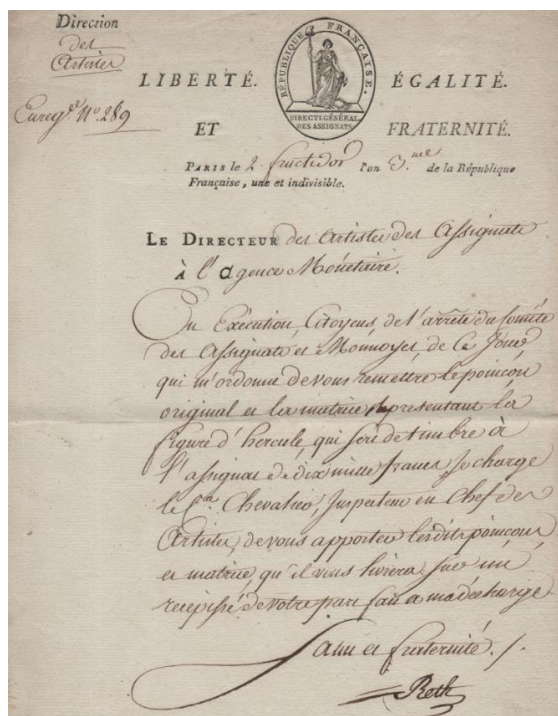 Direction
des
Artistes
Enreg.ᵉ N.º 289
RÉPUBLIQUE FRANÇAISE.
DIRECT.GÉNÉRAL
DES ASSIGNATS
LIBERTÉ. ÉGALITÉ.
ET FRATERNITÉ.
PARIS le 2 fructidor l'an 3.me de la République
Française, une et indivisible.
LE DIRECTEUR des Artistes des Assignats
À l'Agence Monétaire.
En Exécution, Citoyens, de l'arrêté du Comité
des Assignats et Monnoyes, de Ce Jour
qui m'ordonne de vous remettre le poinçon
original et la matrice représentant la
figure d'hercule, qui sert de timbre à
l'assignat de dix mille francs, Je charge
le C.en Chevalier, Inspecteur en Chef des
Artistes, de vous apporter lesdits poinçons
et matrice, qu'il vous livrera sur un
récépissé de votre part fait a ma décharge
Salut et fraternité ./.
Reth